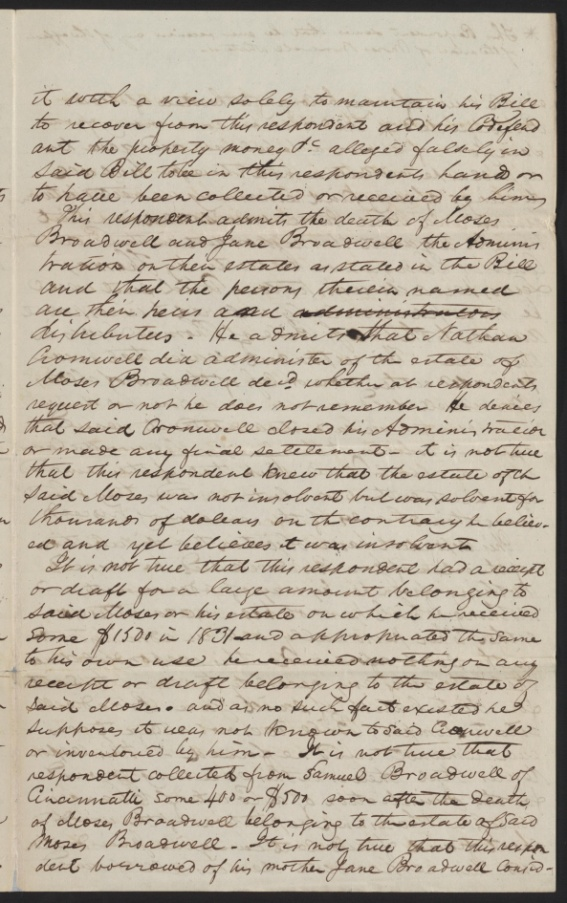 it with a view solely to maintain his Bill
to recover from this respondent and his Codefend
ant the property money &c alleged falsly in
said Bill to be in this respondents hand or
to have been collected or received by him
This respondent admits the death of Moses
Broadwell and Jane Broadwell the Adminis
tration on their estates as stated in the Bill
and that the persons therein named
are their heirs and administrators
distributees. He admits that Nathan
Cromwell did administer of the estate of
Moses Broadwell decd whether at respondents
request or not he does not remember He denies
that said Cromwell closed his Administration
or made any final settlement - it is not true
that this respondent knew that the estate of th
said Moses was not insolvent but was solvent for
thousands of dollars on the contrary he believ-
ed and yet believes it was insolvent
It is not true that this respondent had a receipt
or draft for a large amount belonging to
said Moses or his estate on which he received
some $1500 in 1831 and appropriated the same
to his own use he received nothing on any
receipt or draft belonging to the estate of
said Moses. and as no such fact existed he
supposes it was not known to said Cromwell
or inventoried by him - It is not true that
respondent collected from Samuel Broadwell of
Cincinnatti some 400 or $500 soon after the death
of Moses Broadwell belonging to the estate of said
Moses Broadwell - It is not true that this respon
dent borrowed of his mother Jane Broadwell consid-